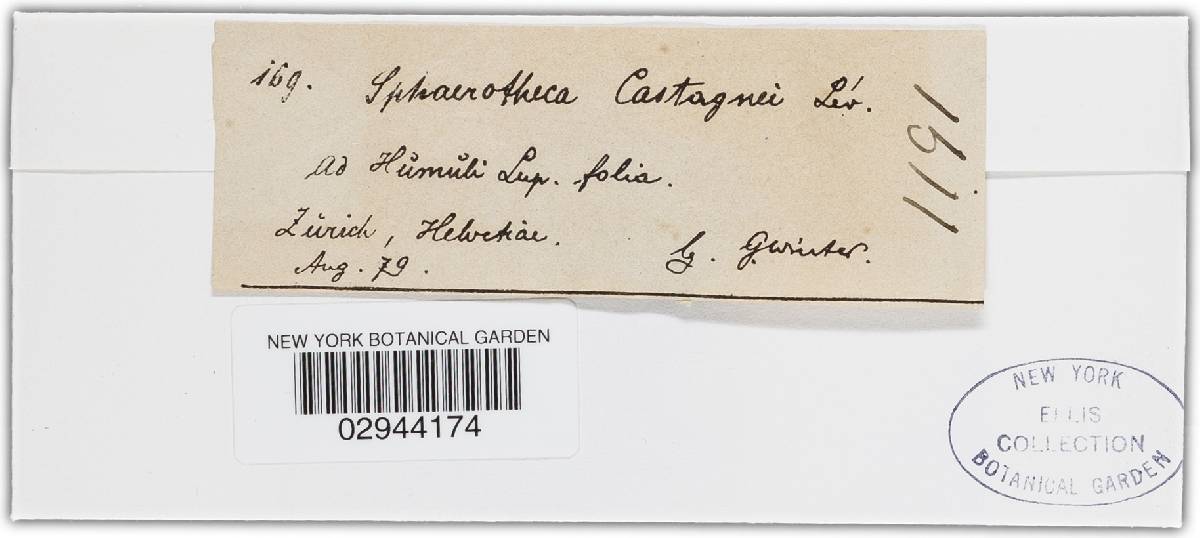 169. Sphaerotheca Castagnei Lév.
ad Hŭmŭli Lup. folia.
Zürich, Helvetiae.
Aug. 79.
G. Winter.
1191
NEW YORK BOTANICAL GARDEN
02944174
NEW YORK
ELLIS
COLLECTION
BOTANICAL GARDEN